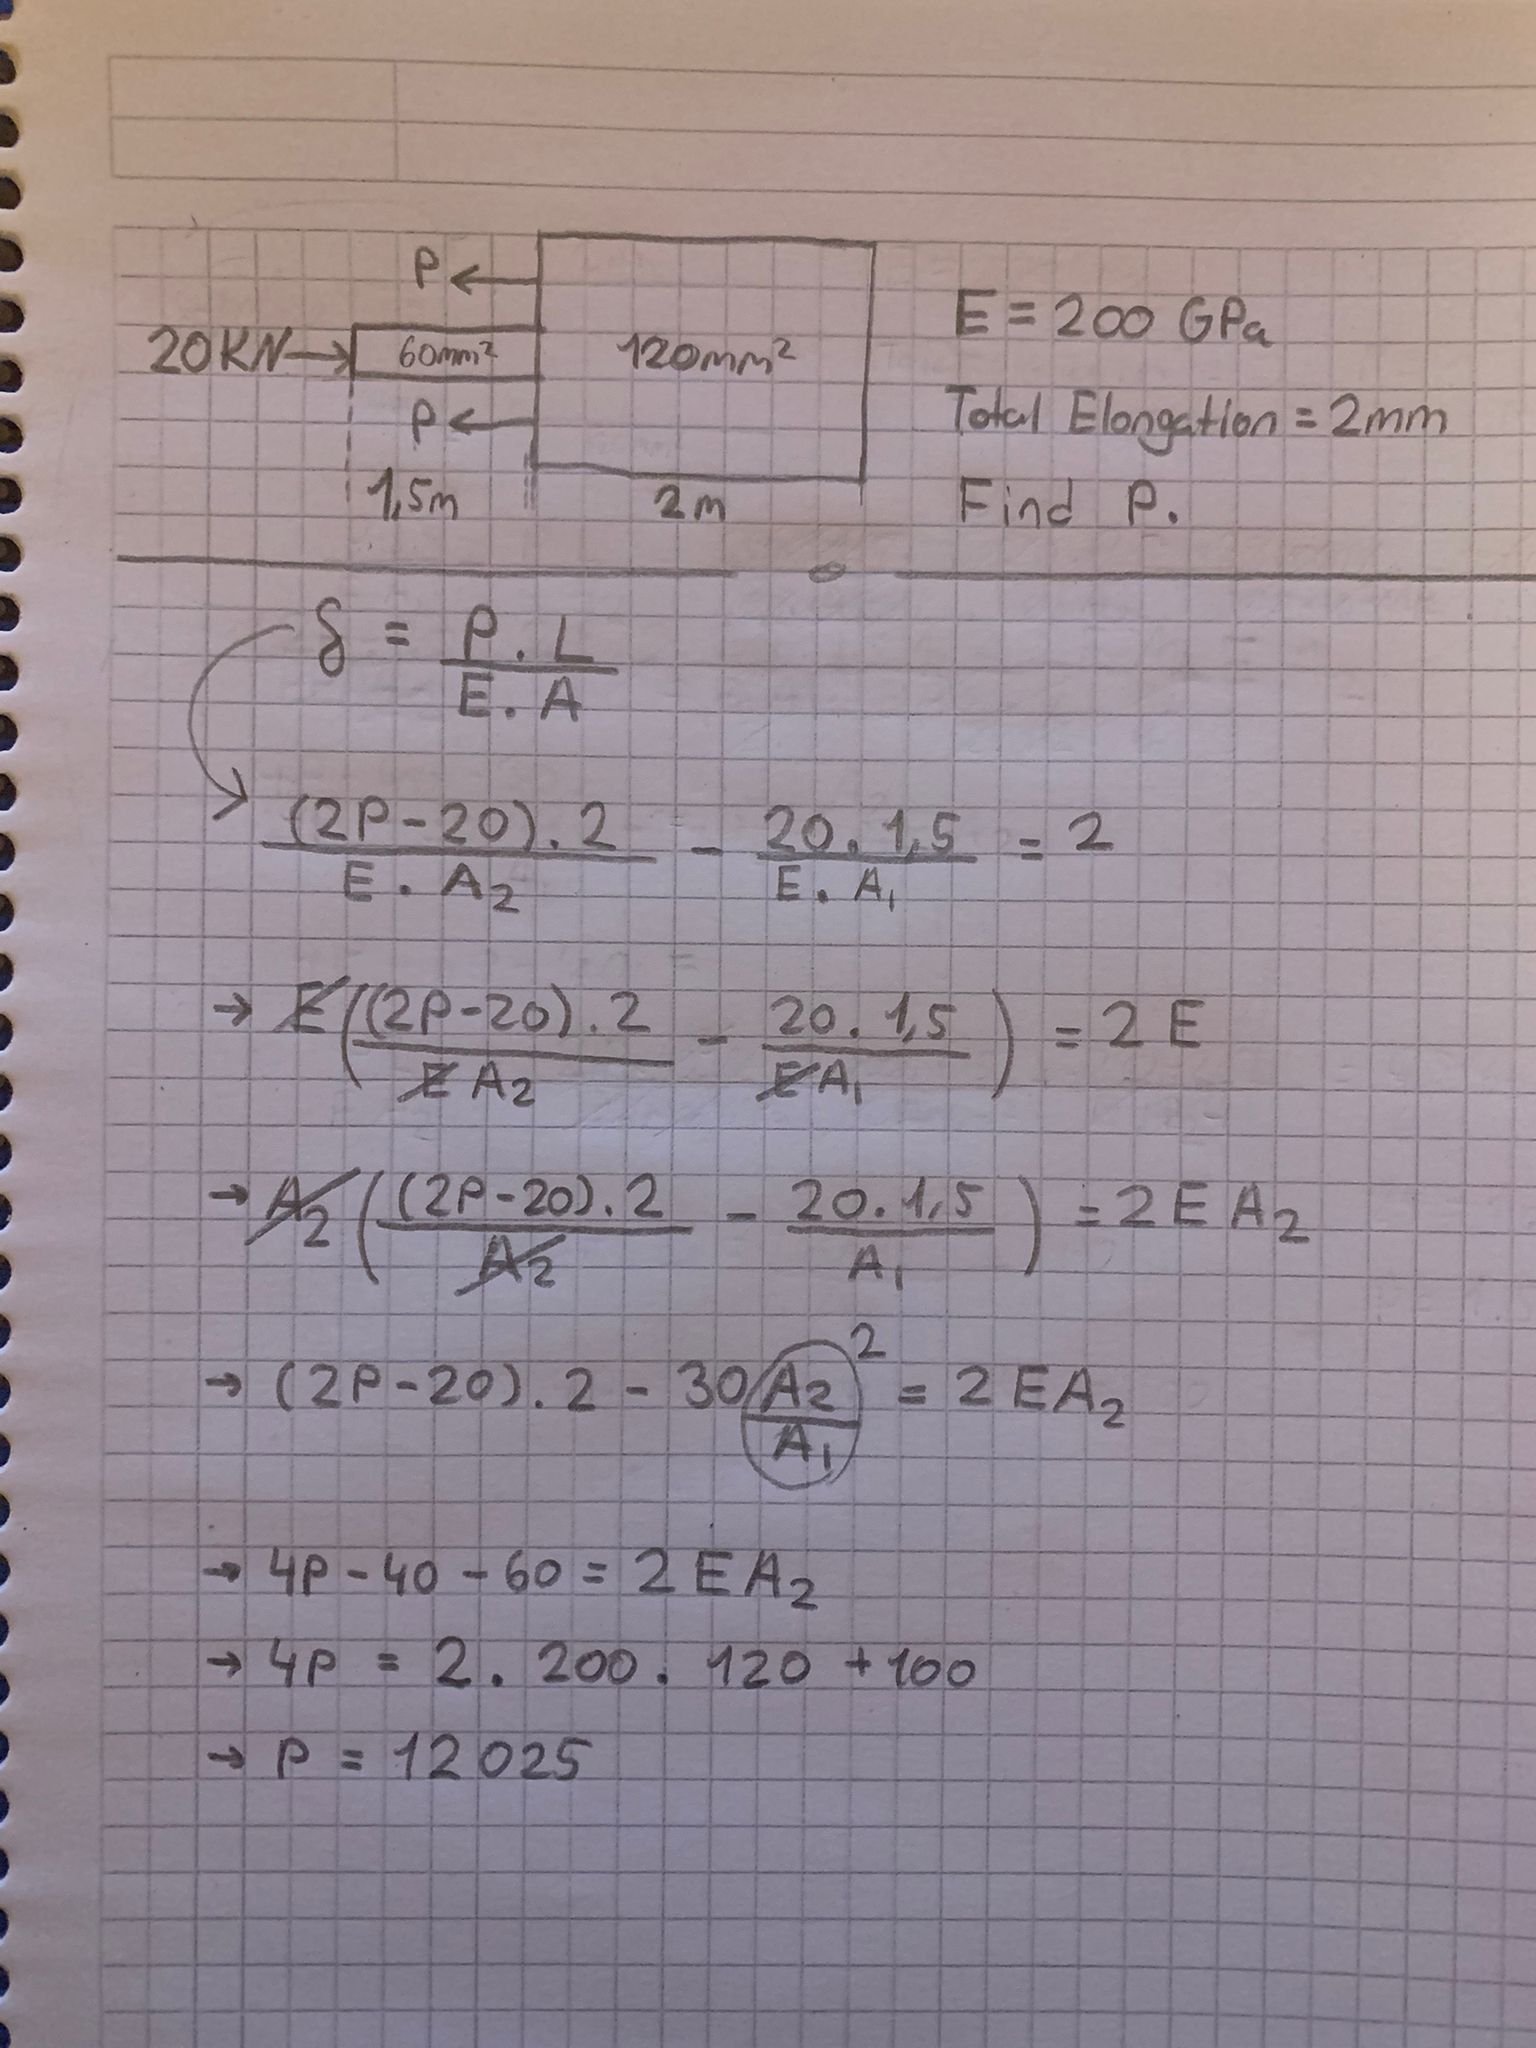 P ←
20KN→ 60mm² 120mm²
P ←
1,5m 2m
E = 200 GPa
Total Elongation = 2mm
Find P.
δ = P . L / E . A
(2P-20) . 2 / E . A₂ - 20 . 1,5 / E . A₁ = 2
→ E((2P-20) . 2 / E A₂ - 20 . 1,5 / E A₁) = 2 E
→ A₂((2P-20) . 2 / A₂ - 20 . 1,5 / A₁) = 2 E A₂
→ (2P-20) . 2 - 30 A₂ / A₁ 2 = 2 E A₂
→ 4P - 40 - 60 = 2 E A₂
→ 4P = 2 . 200 . 120 + 100
→ P = 12025